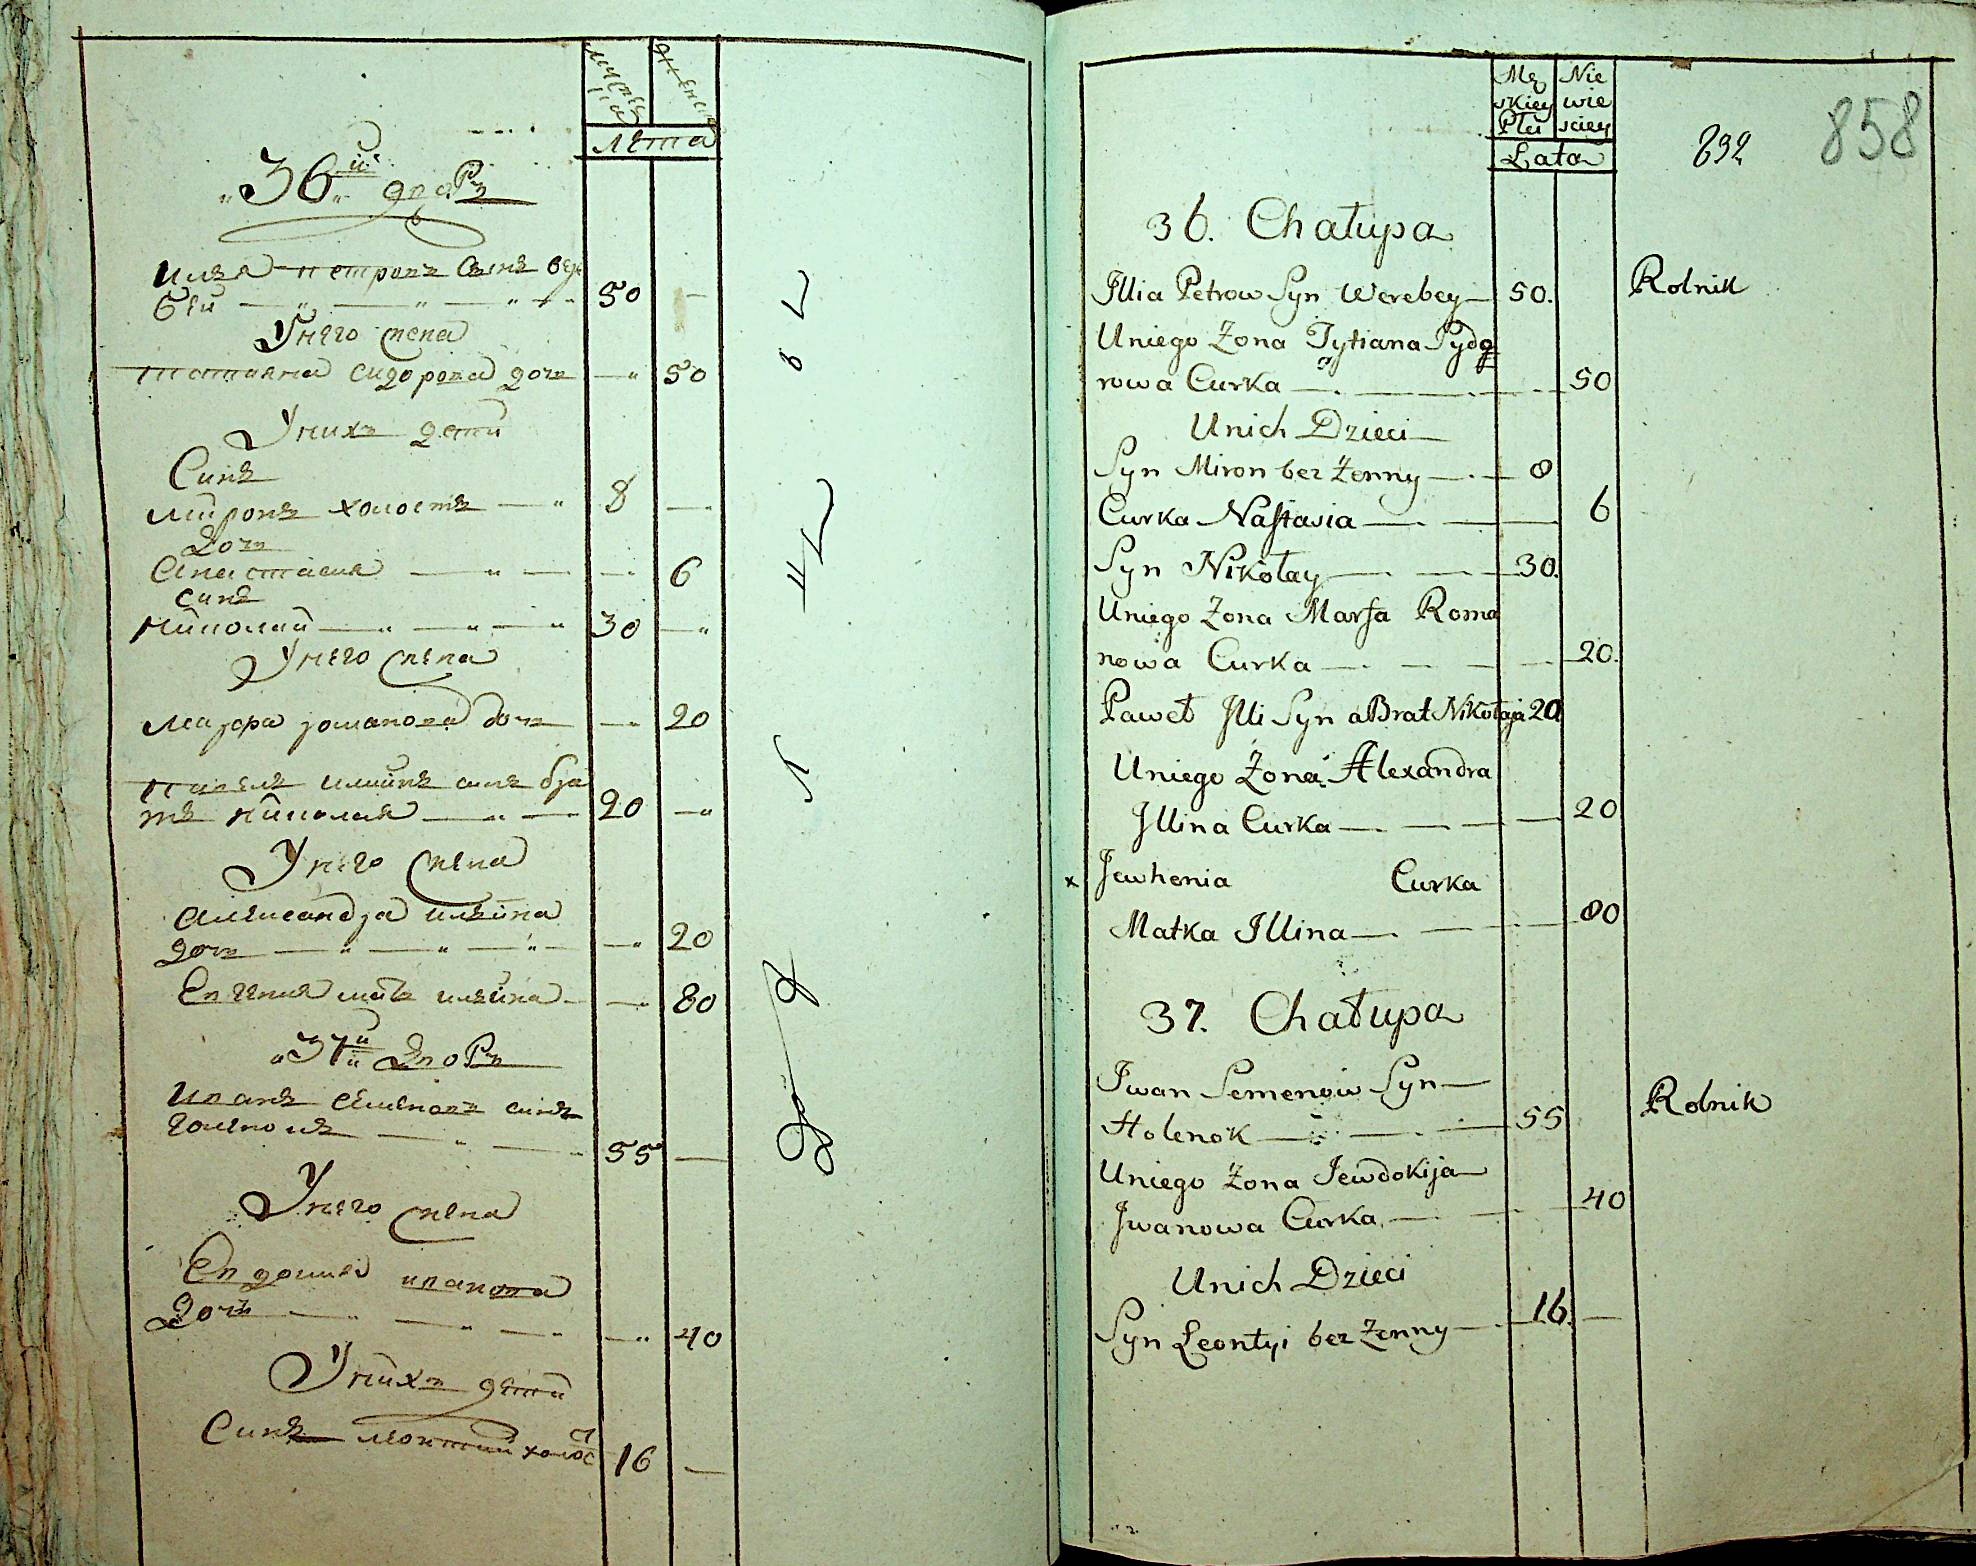 Лѣта
36й дворъ
Илья Петровъ синъ Вере
бей 50
У него жена
Татьяна Сидорова дочь 50
У нихъ дети
Синъ
Миронъ холостъ 8
Дочь
Анастасия 6
синъ
Николай 30
У него жена
Марфа романова дочь 20
Павелъ илинъ синъ бра
тъ Николая 20
У него жена
Александра ильина
дочь 20
Евгения мать ильина 80
37й Дворъ
Иванъ Семеновъ синъ
Голенокъ 55
У него жена
Евдокия иванова
Дочь 40
У нихъ дети
Синъ Леонтий холост 16
Mę Nie
skiey wie
Płci sciey
Lata
892
858
36. Chałupa
Illia Petrow Syn Werebey 50. Rolnik
Uniego Żona Tytiana Sydo
rowa Curka 50
Unich Dzieci
Syn Miron bez Żenny 8
Curka Nastasia 6
Syn Nikołay 30.
Uniego Żona Marfa Roma
nowa Curka 20.
Paweł Illi Syn a Brat Nikołaja 20
Uniego Żona Alexandra
Illina Curka 20
x Jewhenia Curka
Matka Illina 80
37. Chałupa
Iwan Semenow Syn
Holenok 55 Rolnik
Uniego Żona Jewdokija
Iwanowa Curka 40
Unich Dzieci
Syn Leontyi bez Żenny 16.